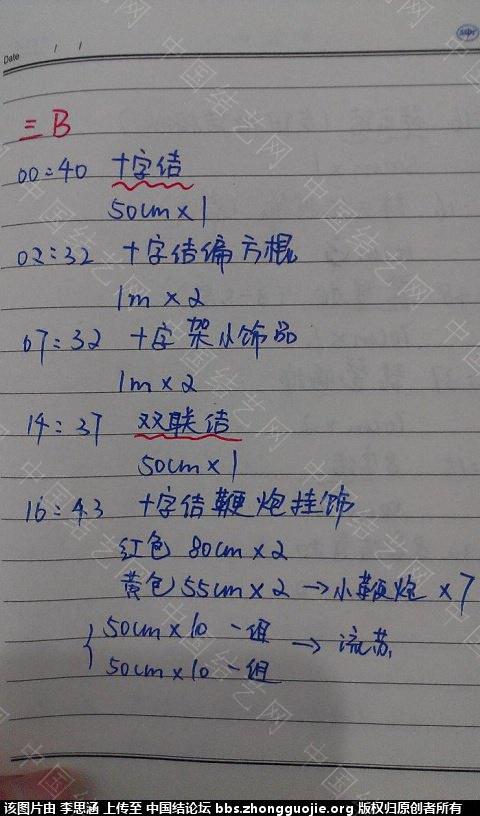 Date / /
三 B
00:40 十字结
50cm×1
02:32 十字结编方棍
1m×2
07:32 十字架小饰品
1m×2
14:37 双联结
50cm×1
16:43 十字结鞭炮挂饰
红色 80cm×2
黄色 55cm×2 →小鞭炮 ×7
{ 50cm×10 一组 → 流苏
50cm×10 一组
中国结艺网
该图片由 李思涵 上传至 中国结论坛 bbs.zhongguojie.org 版权归原创者所有